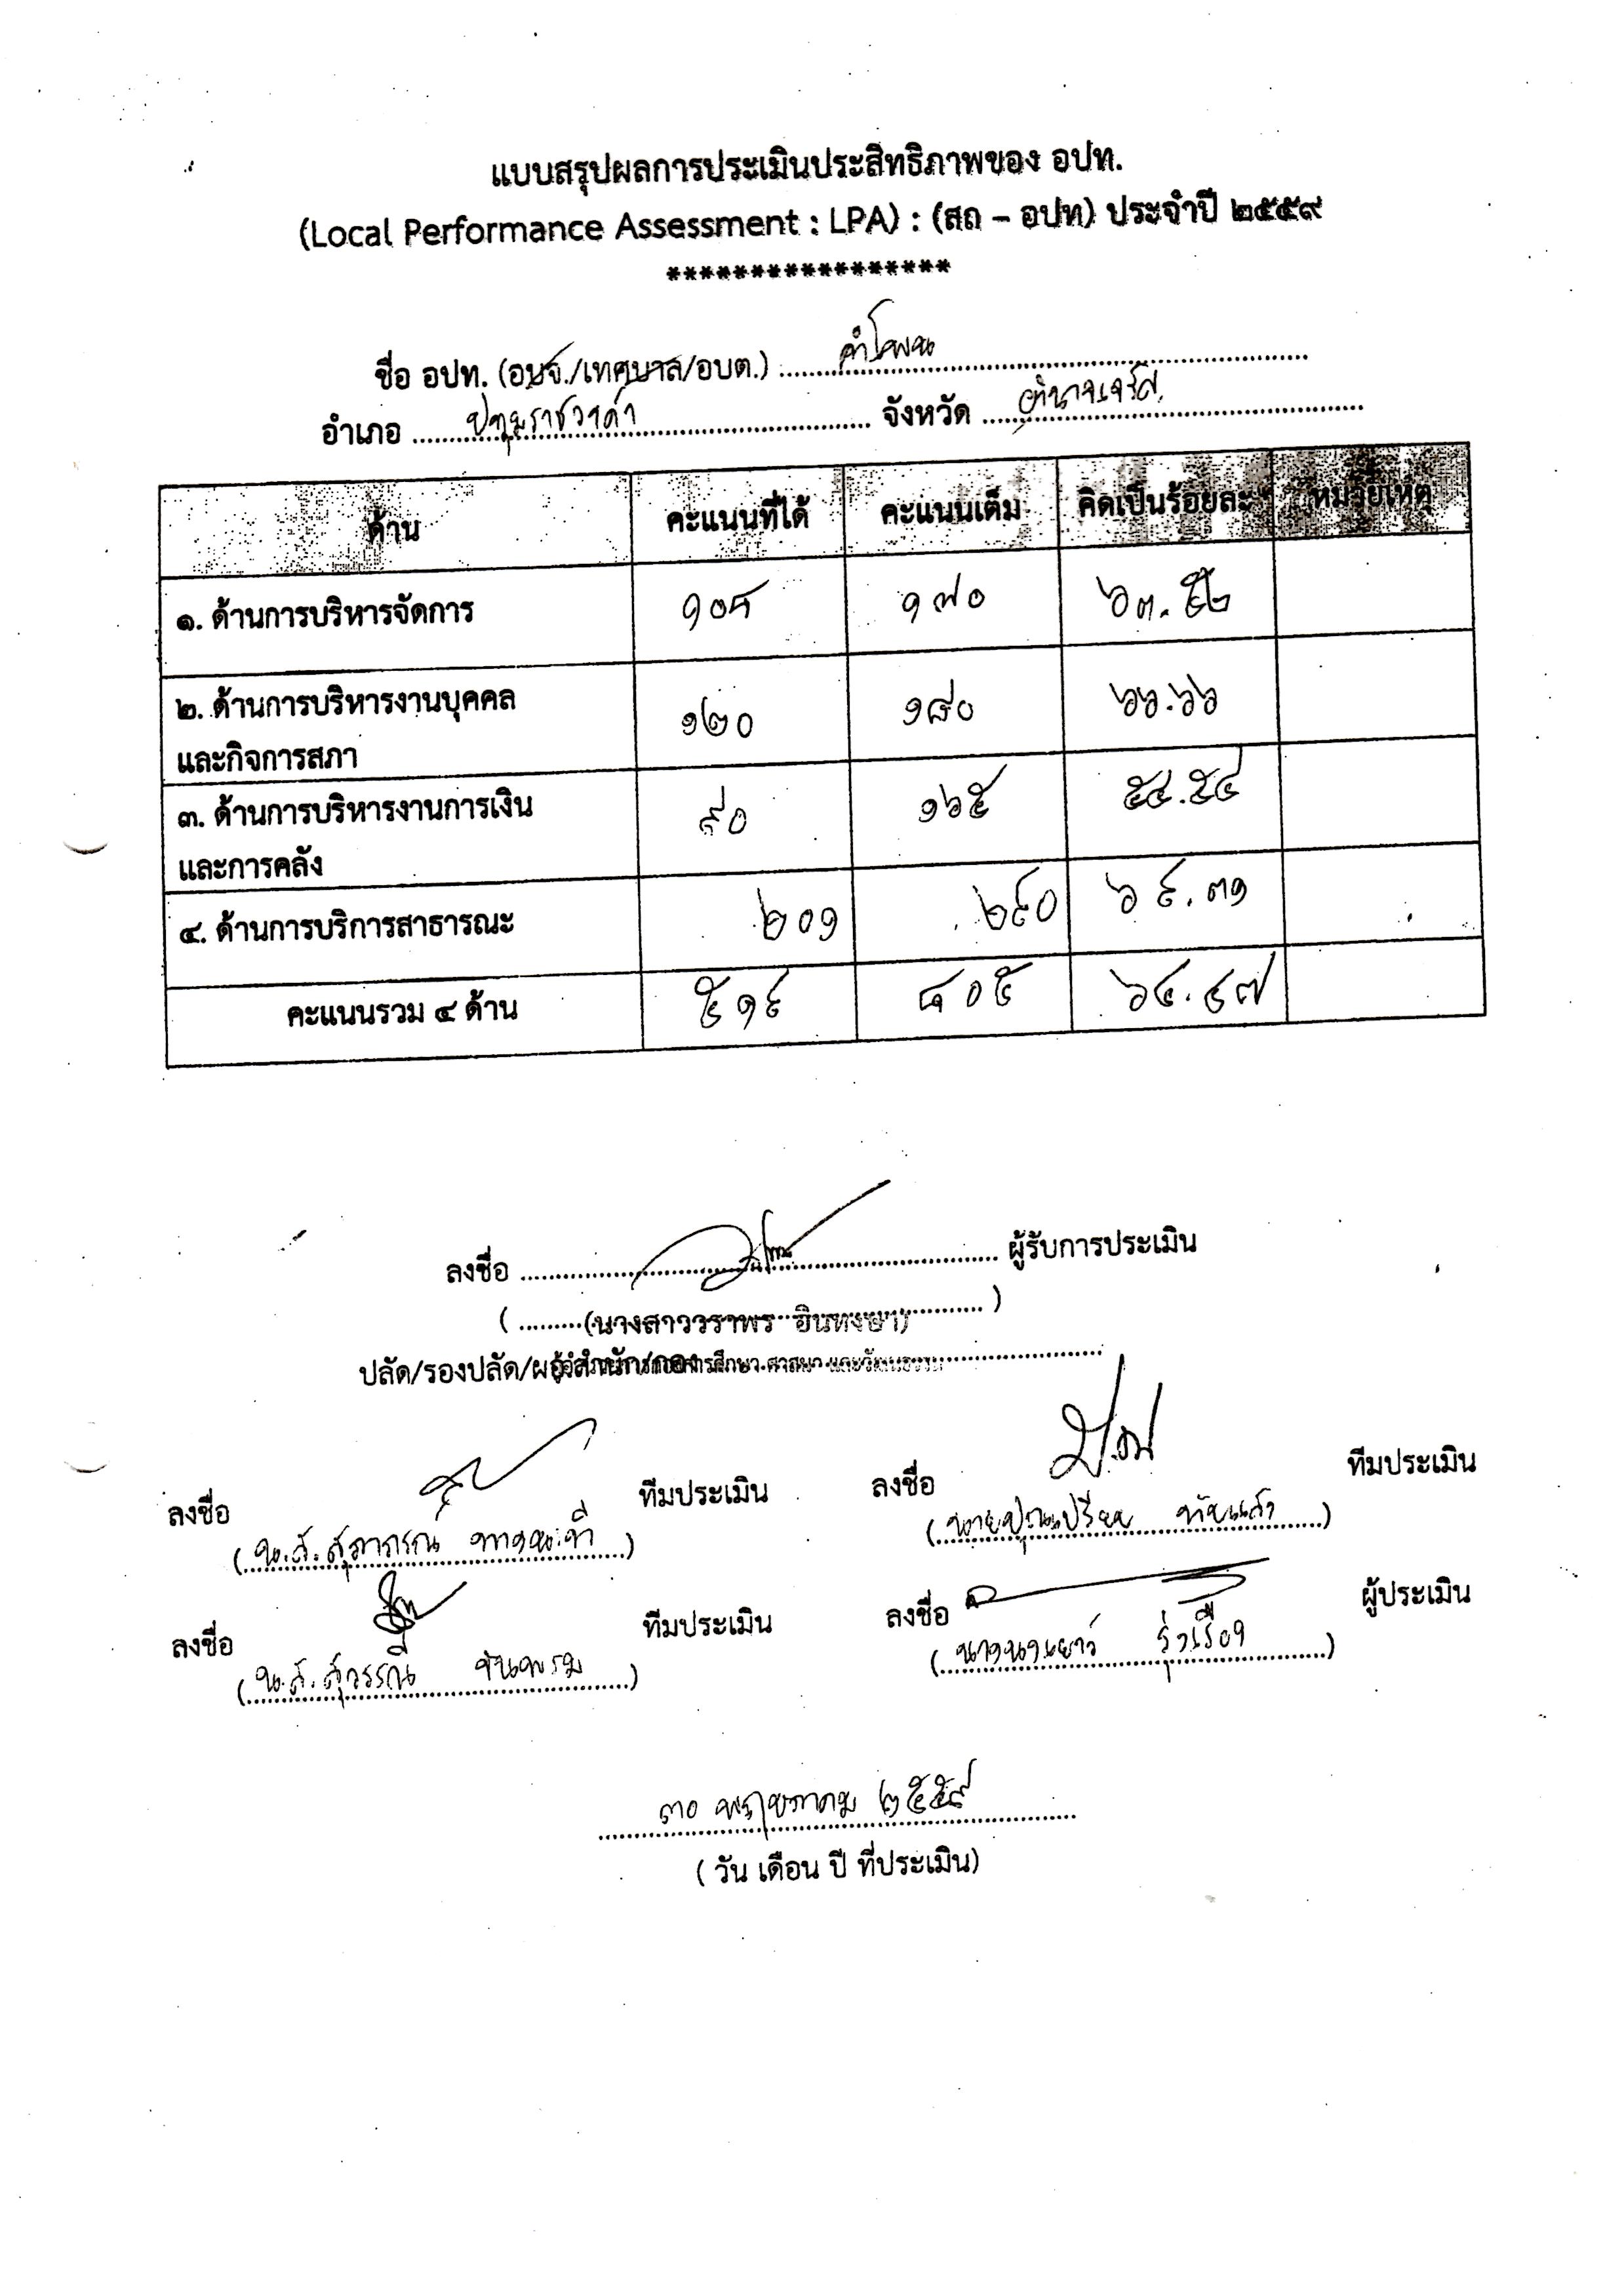 แบบสรุปผลการประเมินประสิทธิภาพของ อปท.
(Local Performance Assessment : LPA) : (สถ – อปท) ประจำปี ๒๕๕๙
*****************
ชื่อ อปท. (อบจ./เทศบาล/อบต.) คำโพน
อำเภอ ปทุมราชวงศา จังหวัด อำนาจเจริญ
ด้าน คะแนนที่ได้ คะแนนเต็ม คิดเป็นร้อยละ หมายเหตุ
๑. ด้านการบริหารจัดการ ๑๐๘ ๑๗๐ ๖๓.๕๒
๒. ด้านการบริหารงานบุคคล
และกิจการสภา ๑๒๐ ๑๘๐ ๖๖.๖๖
๓. ด้านการบริหารงานการเงิน
และการคลัง ๙๐ ๑๖๕ ๕๔.๕๔
๔. ด้านการบริการสาธารณะ ๒๐๑ ๒๙๐ ๖๙.๓๑
คะแนนรวม ๔ ด้าน ๕๑๙ ๘๐๕ ๖๔.๔๗
ลงชื่อ ผู้รับการประเมิน
(นางสาววราพร อินทงษา)
ปลัด/รองปลัด/ผอ.สำนัก/กอง การศึกษา ศาสนา และวัฒนธรรม
ลงชื่อ ทีมประเมิน ลงชื่อ ทีมประเมิน
(น.ส.สุภาภรณ์) (นาย)
ลงชื่อ ทีมประเมิน ลงชื่อ ผู้ประเมิน
(น.ส.สุวรรณี จันพรม) (นางนงเยาว์ รุ่งเรือง)
๓๐ พฤษภาคม ๒๕๕๙
( วัน เดือน ปี ที่ประเมิน)